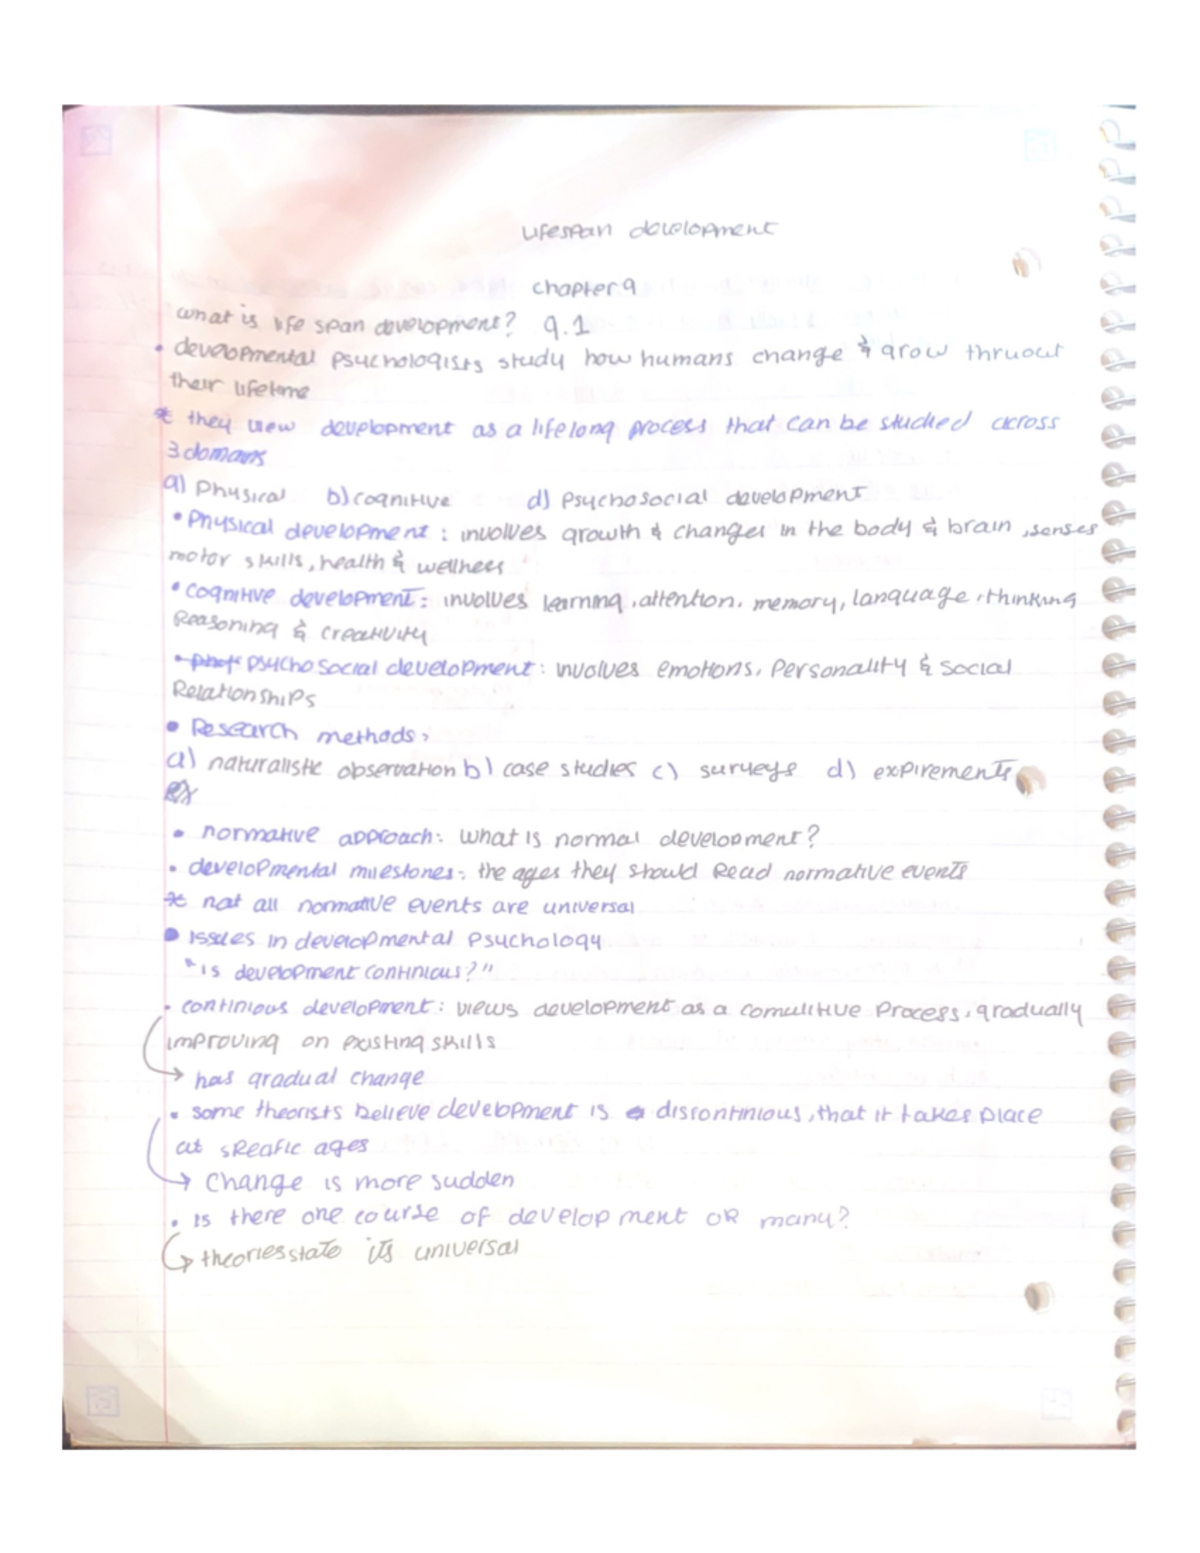 Lifespan development
chapter 9
what is life span development? 9.1
• developmental psychologists study how humans change & grow thruout
their lifetime
* they view development as a lifelong process that can be studied across
3 domains
a) Physical b) cognitive d) Psychosocial development
• Physical development: involves growth & changes in the body & brain, senses
motor skills, health & wellness
• cognitive development: involves learning, attention, memory, language, thinking
Reasoning & creativity
• psychosocial development: involves emotions, Personality & social
Relationships
• Research methods,
a) naturalistic observation b) case studies c) surveys d) expirements
• normative approach: what is normal development?
• developmental milestones: the ages they should Read normative events
* not all normative events are universal
• Issues in developmental Psychology
"is development continious?"
• continious development: views development as a comulitive Process, gradually
improving on existing skills
→ has gradual change
• some theorists believe development is discontinious, that it takes place
at specific ages
→ Change is more sudden
• is there one course of development or many?
→ theories state its universal